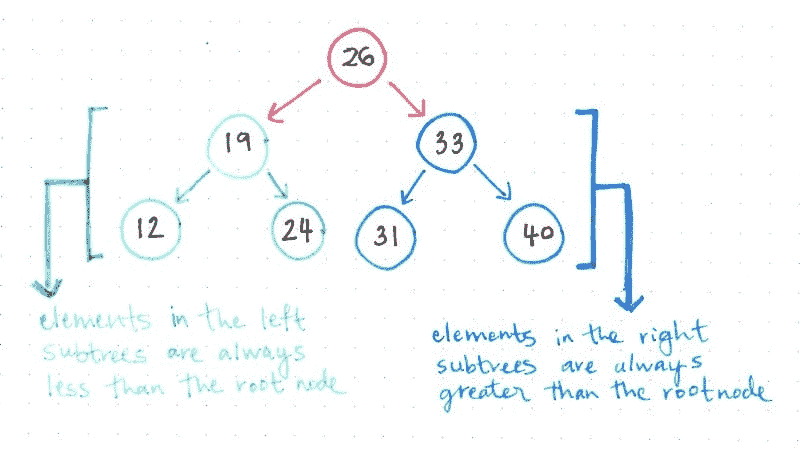 26
19
33
12
24
31
40
elements in the left
subtrees are always
less than the root node
elements in the right
subtrees are always
greater than the rootnode